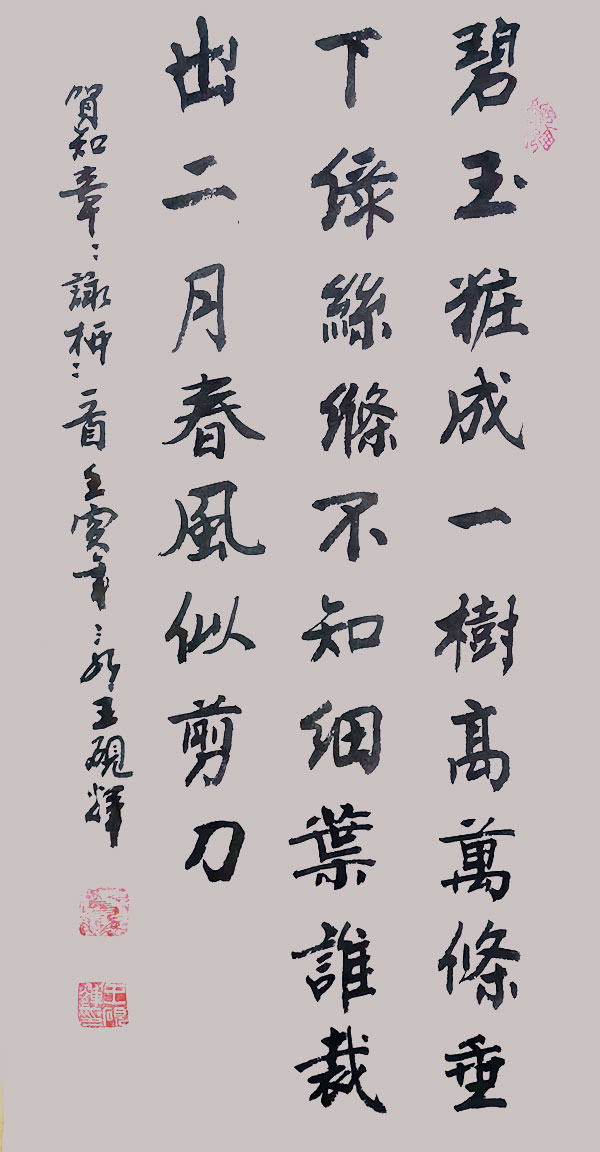 碧玉粧成一樹高萬條垂
下绿絲縧不知细葉誰裁
出二月春風似剪刀
賀知章詠柳一首壬寅年王硯輝